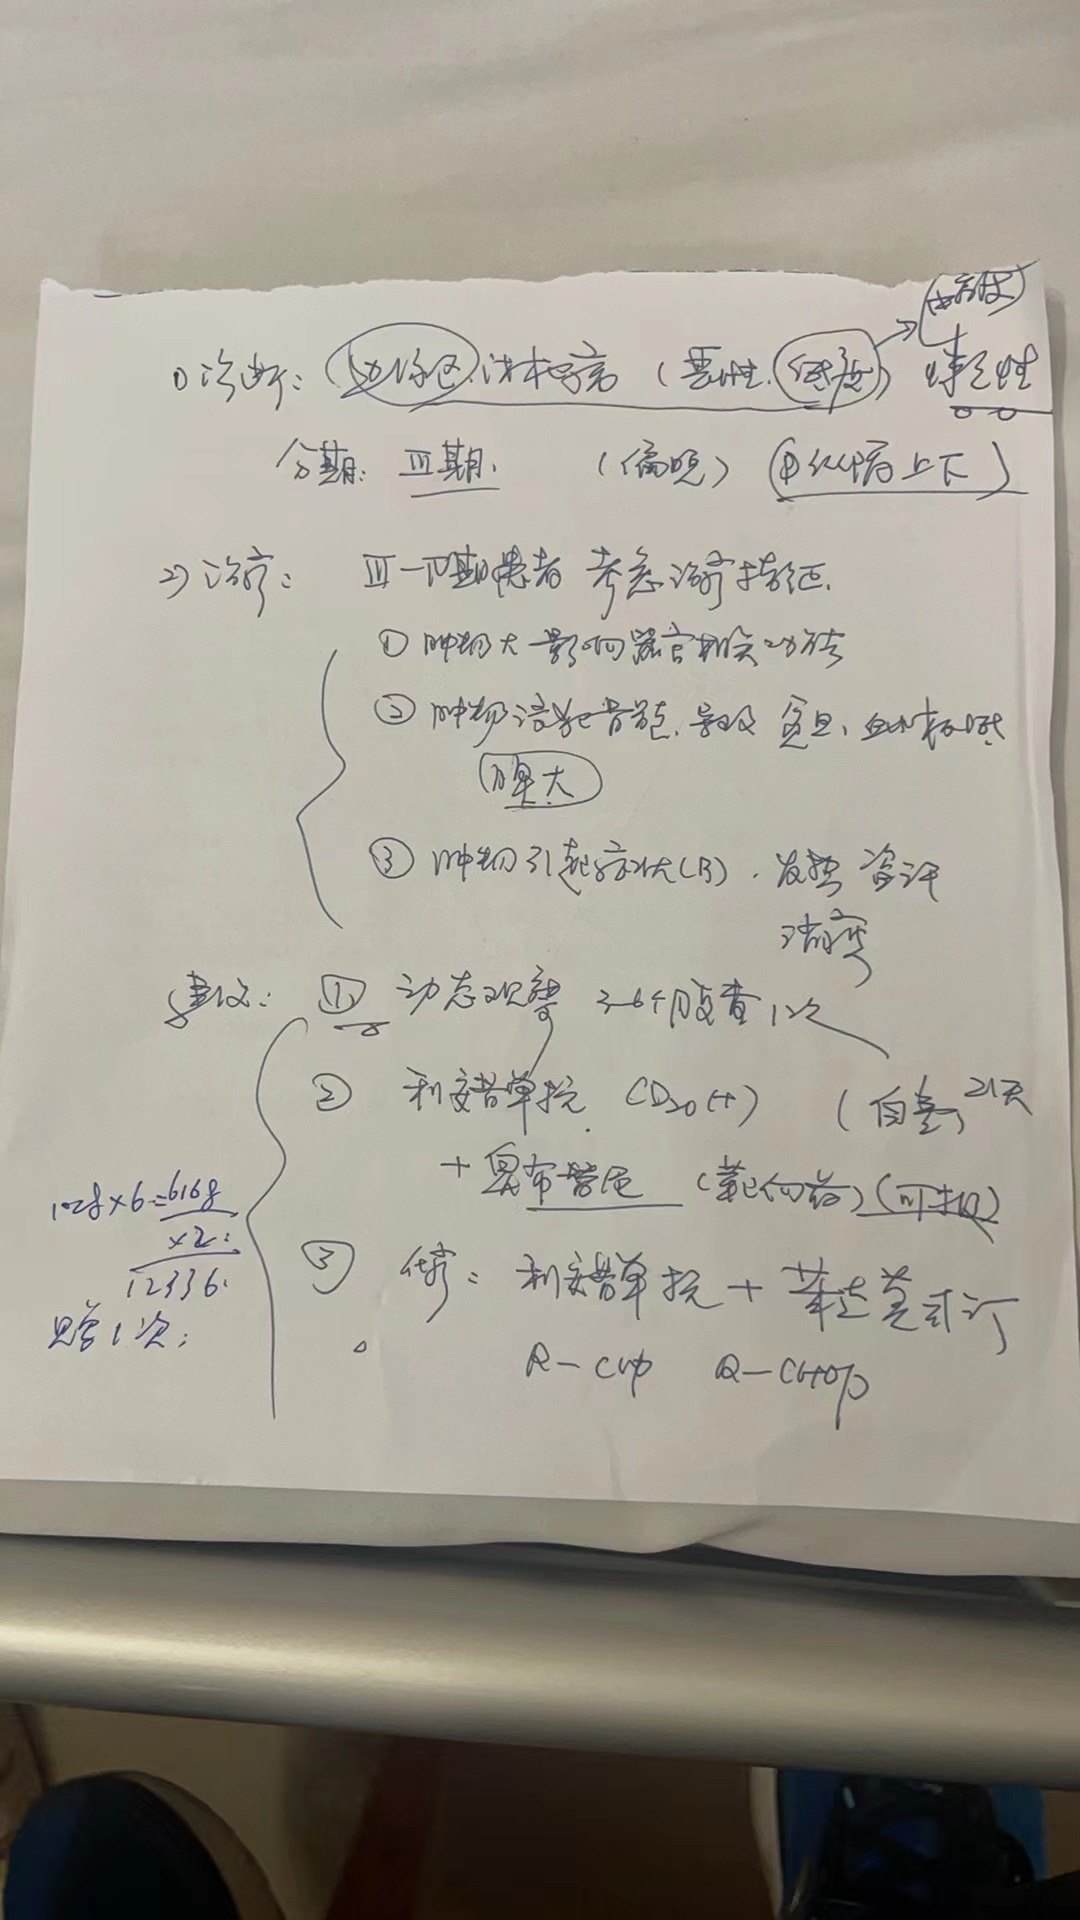 1) 诊断: 边缘区淋巴瘤 (恶性. 低度) → 惰性
分期: Ⅲ期. (偏晚)
2) 治疗: Ⅲ-Ⅳ期患者 考虑治疗指征.
① 肿物大 影响器官相关功能
② 肿物侵犯骨髓. 导致 贫血、血小板减
脾大
③ 肿物引起症状(B). 发热 盗汗
消瘦
建议: ① 动态观察 3-6个月复查1次
② 利妥昔单抗. CD20(+) (自费) 21天
+ 奥布替尼 (靶向药) (可报)
1028×6=6168
×2:
12336.
赠1次;
③ 化疗: 利妥昔单抗 + 苯达莫司汀
R-CVP R-CHOP